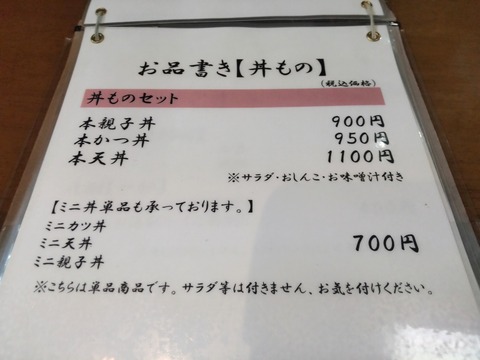 お品書き【丼もの】
(税込価格)
丼ものセット
本親子丼 900円
本かつ丼 950円
本天丼 1100円
※サラダ・おしんこ・お味噌汁付き
【ミニ丼単品も承っております。】
ミニカツ丼
ミニ天丼 700円
ミニ親子丼
※こちらは単品商品です。サラダ等は付きません、お気を付けください。